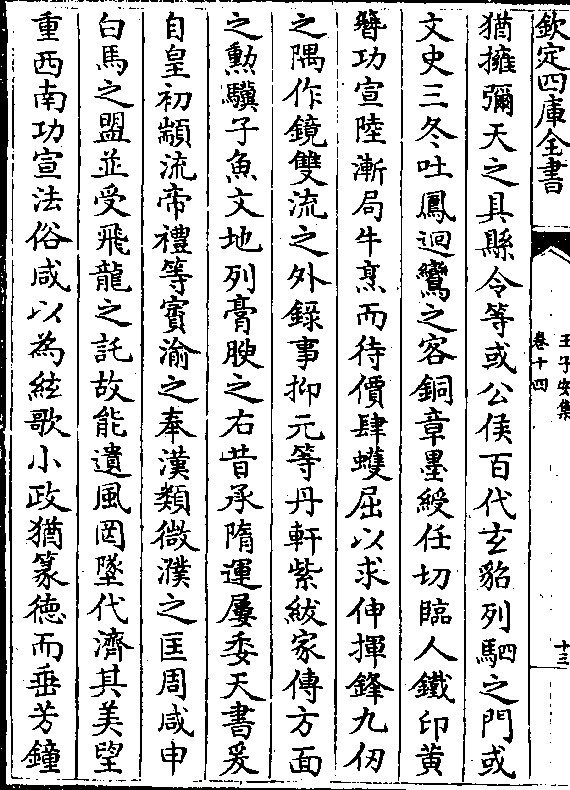 欽定四庫全書
王子安集
卷十四
十三
猶擁彌天之具縣令等或公侯百代玄貂列駟之門或
文史三冬吐鳳迴鸞之容銅章墨綬任切臨人鐵印黄
簪功宣陸漸局牛烹而待價肆蠖屈以求伸揮鋒九仞
之隅作鏡雙流之外錄事抑元等丹軒紫紱家傳方面
之勲驥子魚文地列膏腴之右昔承隋運屢委天書爰
自皇初顓流帝禮等賓渝之奉漢類微濮之匡周咸申
白馬之盟並受飛龍之託故能遺風罔墜代濟其美望
重西南功宣法俗咸以為絃歌小政猶篆徳而垂芳鐘